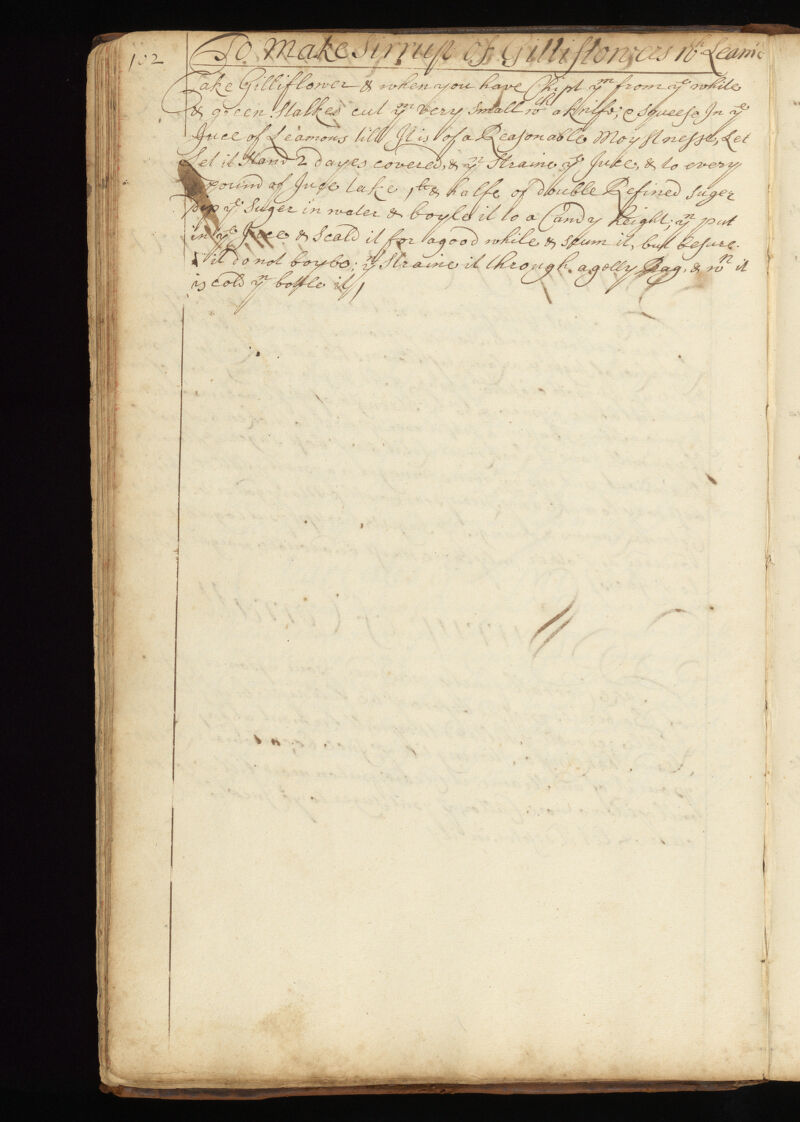 132
To Make Sirrup of Gilliflowers wth Leamo
Take Gilliflower & when you have Chipt ym from ye white
& green Stalkes cut ym very Small wth a knife; Squeese In ye
Juce of Leamons till It is of a Reasonable Moystnesse, Let
Let it Stand 2 dayes covered, & yn Straine ye Juce, & to every
pound of Juce take 1 lb & halfe of double Refined Suger
Dip ye Suger in water & boyle it to a Candy height; yn put
in ye Juce & Scald it for a good while & Scum it, but besure
it do not boyle; yn Straine it through a gelly Bag, & wn it
is cold yn botle it